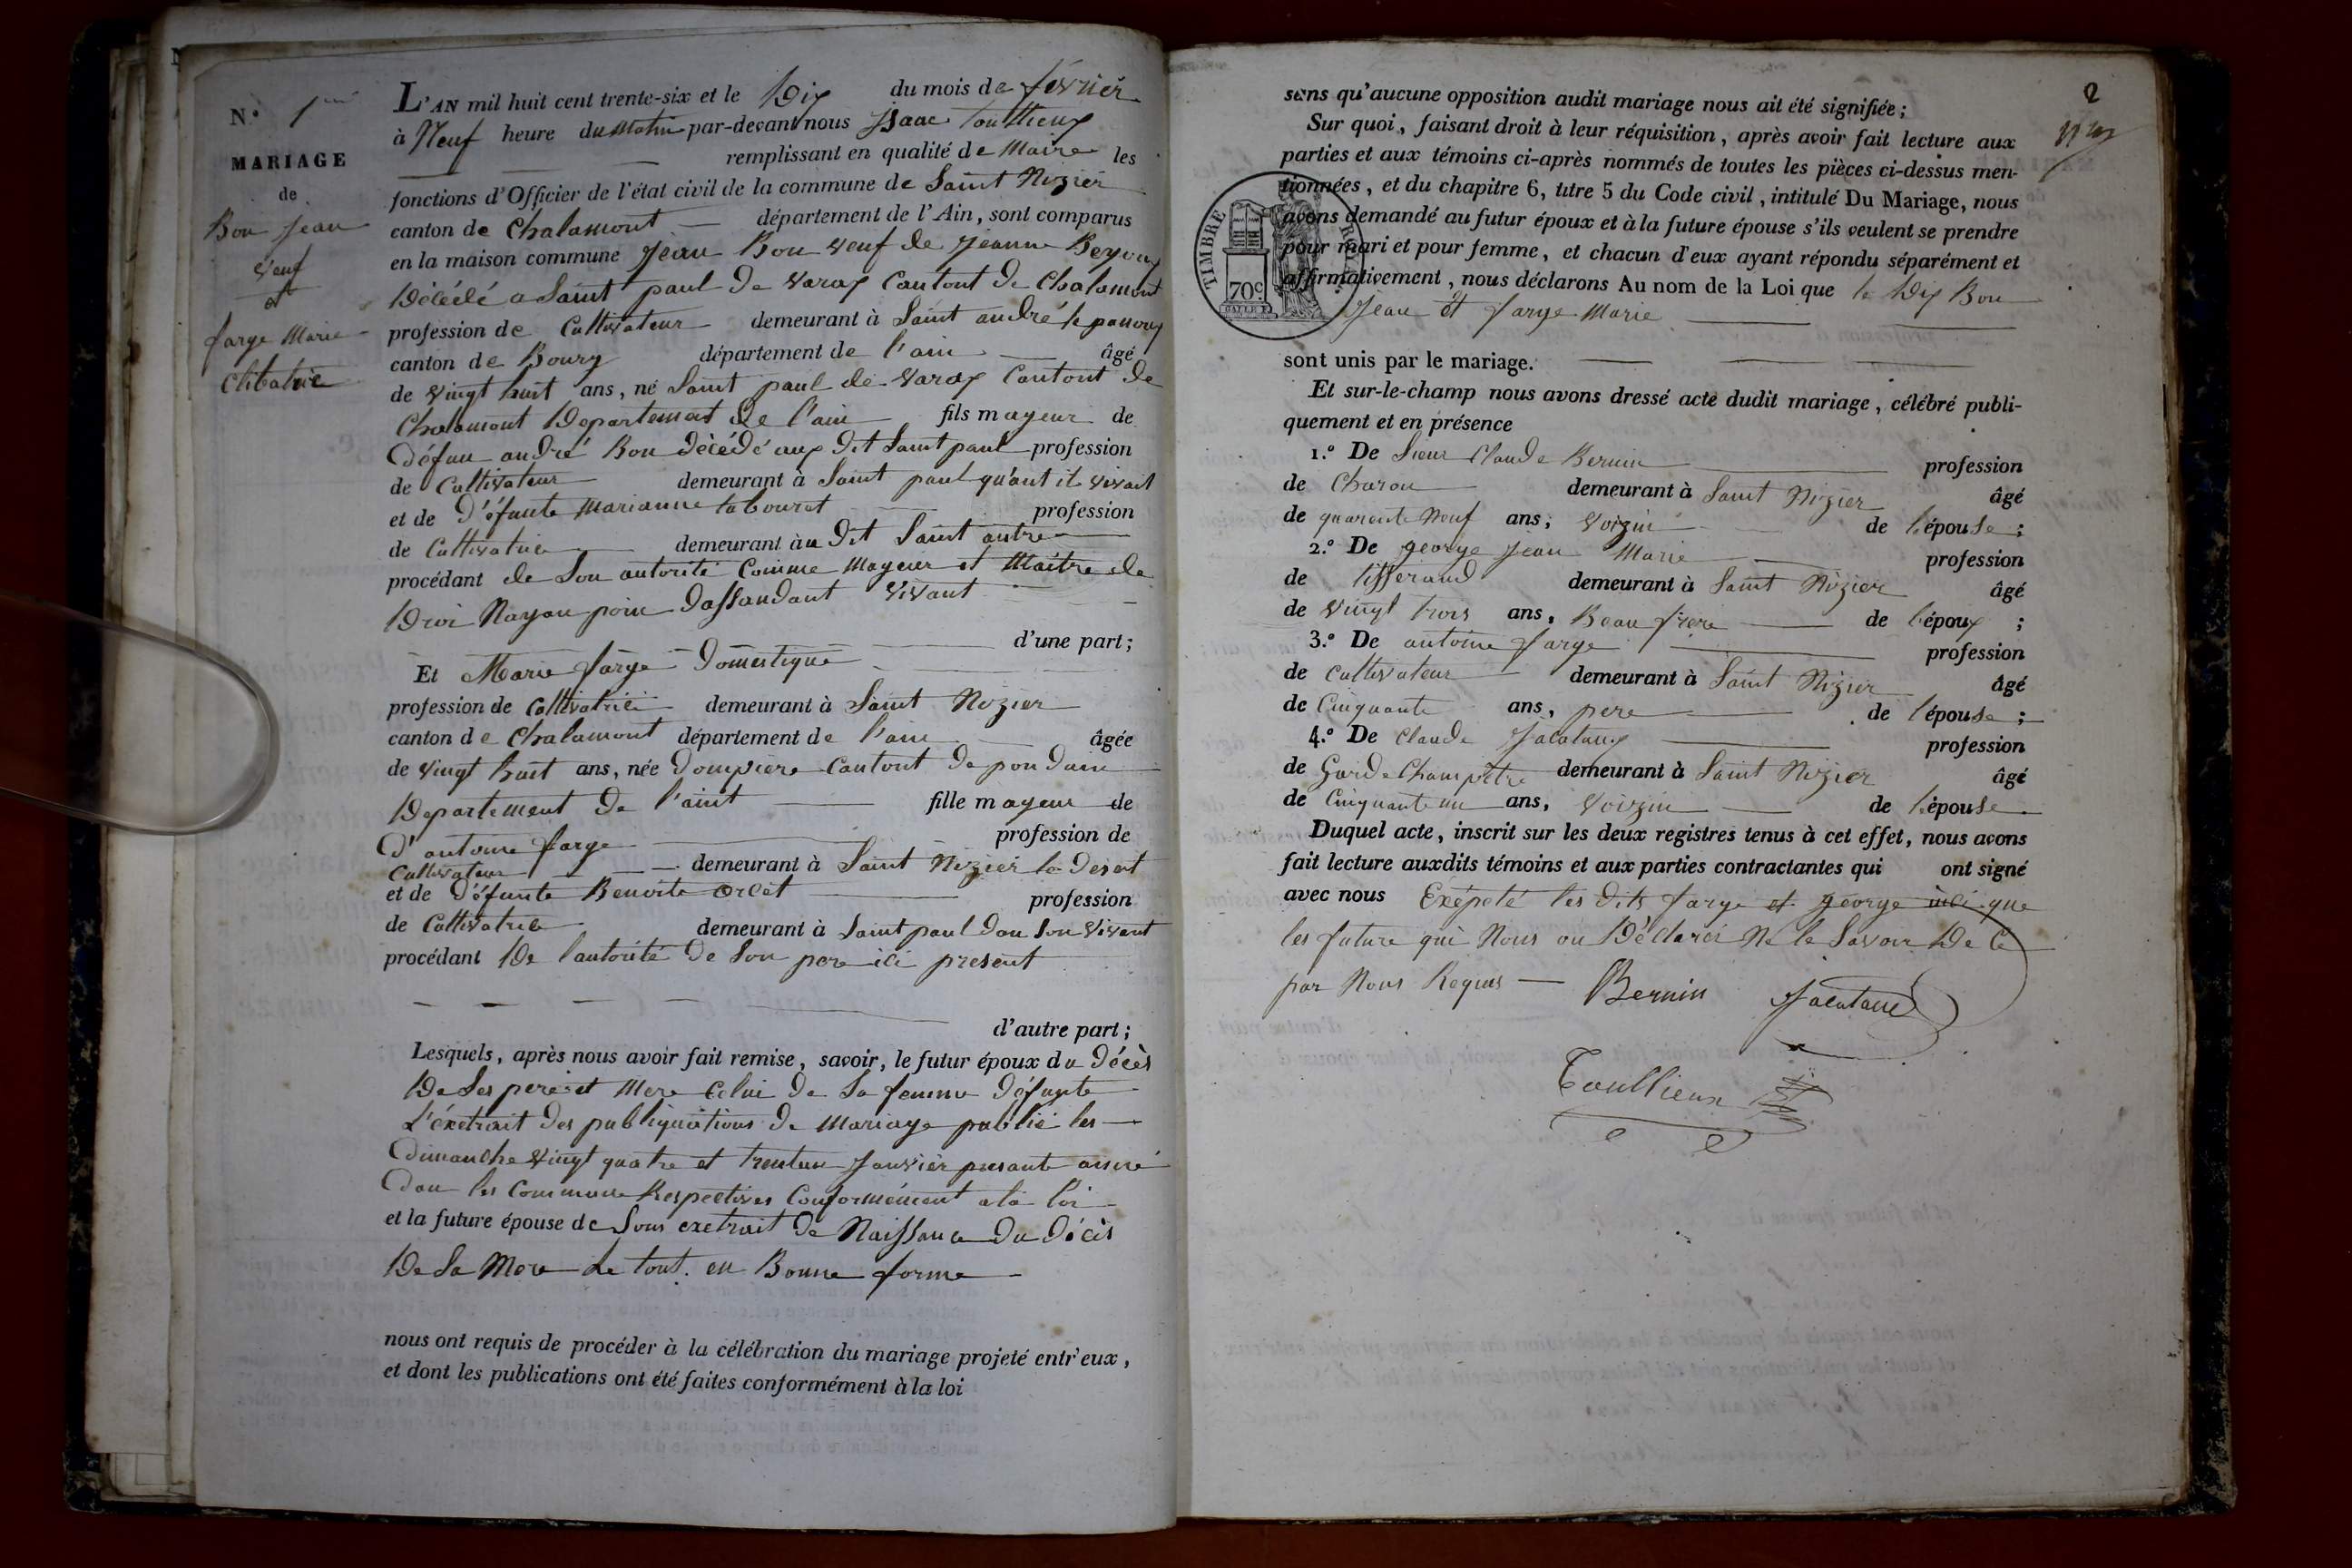 N.° 1er
MARIAGE
de
Bon Jean
Veuf
et
farge Marie
Clibatrie
L'AN mil huit cent trente-six et le Dix du mois de février
à Neuf heure du Matin par-devant nous Isaac Toullieux
remplissant en qualité de Maire les
fonctions d'Officier de l'état civil de la commune de Saint Nizier
canton de Chalamont département de l'Ain, sont comparus
en la maison commune Jean Bon veuf de Jeanne
Décédé a Saint paul De Varax Cantont De Chalamont
profession de Cultivateur demeurant à Saint andré le panoux
canton de Bourg département de l'ain âgé
de vingt huit ans, né Saint paul de Varax Cantont de
Chalamont Departement De l'ain fils mayeur de
Défun andré Bon Décédé aux Dit Saint paul profession
de Cultivateur demeurant à Saint paul qu'ant il vivait
et de D'éfunte Marianne tabouret profession
de Cultivatrice demeurant àu Dit Saint
procédant de Son autorité Comme Mayeur et Maitre de
Droi Nayan poin Dassandant Vivant
d'une part;
Et Marie farge Domestique
profession de Cultivatrice demeurant à Saint Nizier
canton de Chalamont département de l'ain âgée
de vingt huit ans, née Dompiere Cantont De pon Dain
Departement De l'aint fille mayeur de
D'antoine farge profession de
Cultivateur demeurant à Saint Nizier le Desert
et de D'éfunte Benoite profession
de Cultivatrice demeurant à Saint paul Dan Son Vivant
procédant De l'autorité De Son pere ici présent
d'autre part;
Lesquels, après nous avoir fait remise, savoir, le futur époux du Décès
De Ses pere et Mere Celui De Sa femme Défunte
L'éxetrait Des publiquátions De Mariage publié les
Dimanche Vingt quatre et trentun Janvièr presante anné
Dan les Commune Respectives Conformément ala loi
et la future épouse de Sons exetrait De Naissance Du Décès
De Sa Mere Le tout en Bonne forme
nous ont requis de procéder à la célébration du mariage projeté entr'eux,
et dont les publications ont été faites conformément à la loi
2
sans qu'aucune opposition audit mariage nous ait été signifiée;
Sur quoi, faisant droit à leur réquisition, après avoir fait lecture aux
parties et aux témoins ci-après nommés de toutes les pièces ci-dessus men-
tionnées, et du chapitre 6, titre 5 du Code civil, intitulé Du Mariage, nous
avons demandé au futur époux et à la future épouse s'ils veulent se prendre
pour mari et pour femme, et chacun d'eux ayant répondu séparément et
affirmativement, nous déclarons Au nom de la Loi que le Dis Bon
Jean et farge Marie
TIMBRE ROYAL
70c.
sont unis par le mariage.
Et sur-le-champ nous avons dressé acte dudit mariage, célébré publi-
quement et en présence
1.° De Sieur Claude Bernin profession
de Charon demeurant à Saint Nizier âgé
de quarente Neuf ans; Voizin de l'épouse;
2.° De george Jean Marie profession
de tisserand demeurant à Saint Nizier âgé
de vingt trois ans, Beau frere de l'époux;
3.° De antoine farge profession
de Cultivateur demeurant à Saint Nizier âgé
de Cinquante ans, pere de l'épouse;
4.° De Claude profession
de Garde Champêtre demeurant à Saint Nizier âgé
de Cinquante un ans, Voizin de l'épouse.
Duquel acte, inscrit sur les deux registres tenus à cet effet, nous avons
fait lecture auxdits témoins et aux parties contractantes qui ont signé
avec nous Exépeté les Dits farge et george que
les future qui Nous on Déclarés Ne le Savoir De Ce
par Nous Requis Bernin
Toullieux